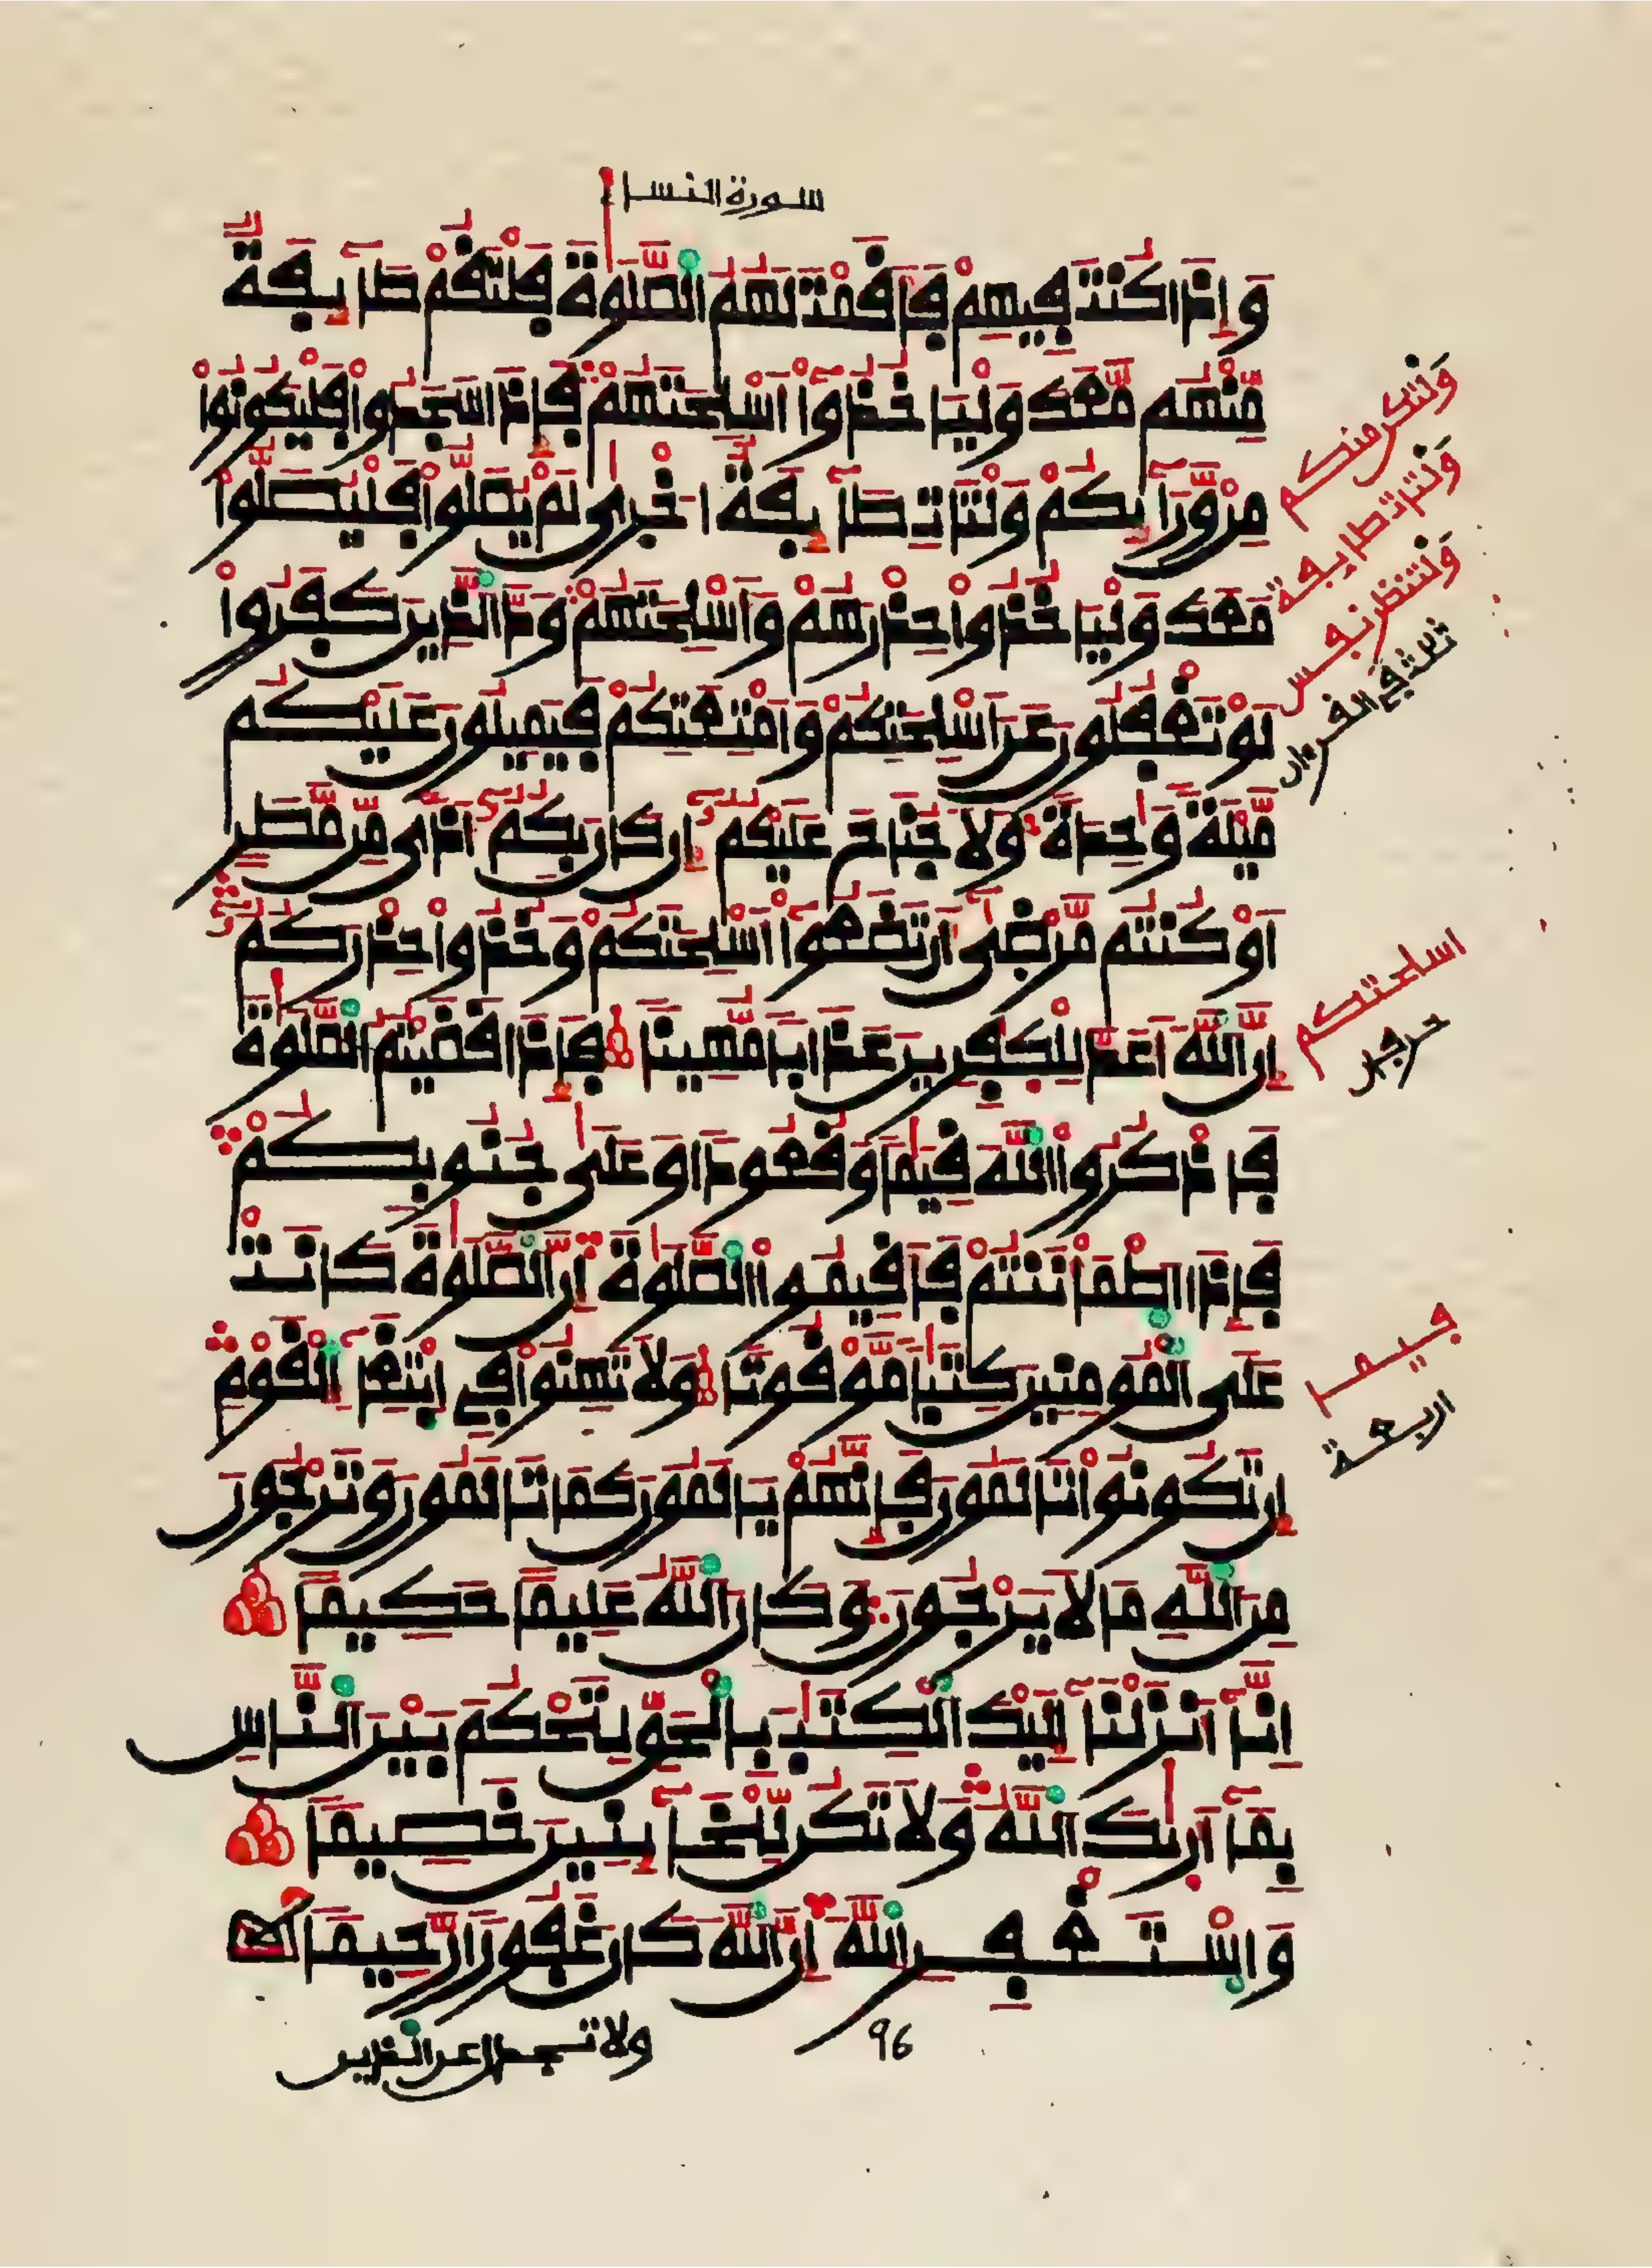 سورة النساء
وَإِذَا كُنتَ فِيهِمْ فَأَقَمْتَ لَهُمُ الصَّلَوٰةَ فَلْتَقُمْ طَآئِفَةٌ
مِّنْهُم مَّعَكَ وَلْيَاخُذُوٓاْ أَسْلِحَتَهُمْ فَإِذَا سَجَدُواْ فَلْيَكُونُواْ
مِنْ وَّرَآئِكُمْ وَلْتَاتِ طَآئِفَةٌ اخْرٰى لَمْ يُصَلُّواْ فَلْيُصَلُّواْ
مَعَكَ وَلْيَاخُذُواْ حِذْرَهُمْ وَأَسْلِحَتَهُمْ وَدَّ الذِينَ كَفَرُواْ
لَوْ تَغْفُلُونَ عَنَ اسْلِحَتِكُمْ وَأَمْتِعَتِكُمْ فَيَمِيلُونَ عَلَيْكُم
مَّيْلَةً وَٰحِدَةً وَلَا جُنَاحَ عَلَيْكُمُ إِن كَانَ بِكُمُ أَذًى مِّن مَّطَرٍ
أَوْ كُنتُم مَّرْضٰىٓ أَن تَضَعُوٓاْ أَسْلِحَتَكُمْ وَخُذُواْ حِذْرَكُمُ
إِنَّ اللَّهَ أَعَدَّ لِلْكٰفِرِينَ عَذَابًا مُّهِينًا فَإِذَا قَضَيْتُمُ الصَّلَوٰةَ
فَاذْكُرُواْ اللَّهَ قِيَٰمًا وَقُعُودًا وَعَلَىٰ جُنُوبِكُمْ
فَإِذَا اطْمَأْنَنتُمْ فَأَقِيمُواْ الصَّلَوٰةَ إِنَّ الصَّلَوٰةَ كَانَتْ
عَلَى الْمُومِنِينَ كِتَٰبًا مَّوْقُوتًا وَلَا تَهِنُواْ فِے ابْتِغَآءِ الْقَوْمِ
إِن تَكُونُواْ تَالَمُونَ فَإِنَّهُمْ يَالَمُونَ كَمَا تَالَمُونَ وَتَرْجُونَ
مِنَ اللَّهِ مَا لَا يَرْجُونَ وَكَانَ اللَّهُ عَلِيمًا حَكِيمًا
إِنَّآ أَنزَلْنَآ إِلَيْكَ الْكِتَٰبَ بِالْحَقِّ لِتَحْكُمَ بَيْنَ النَّاسِ
بِمَآ أَرٰىٰكَ اللَّهُ وَلَا تَكُن لِّلْخَآئِنِينَ خَصِيمًا
وَاسْتَغْفِرِ اللَّهَ إِنَّ اللَّهَ كَانَ غَفُورًا رَّحِيمًا
96
ولا تجدل عن الذين
ولتكن منكم
ولتات طايفة
ولتنظر نفس
ثلث في القرءان
اسلحتكم
حرفان
فيما
اربعة